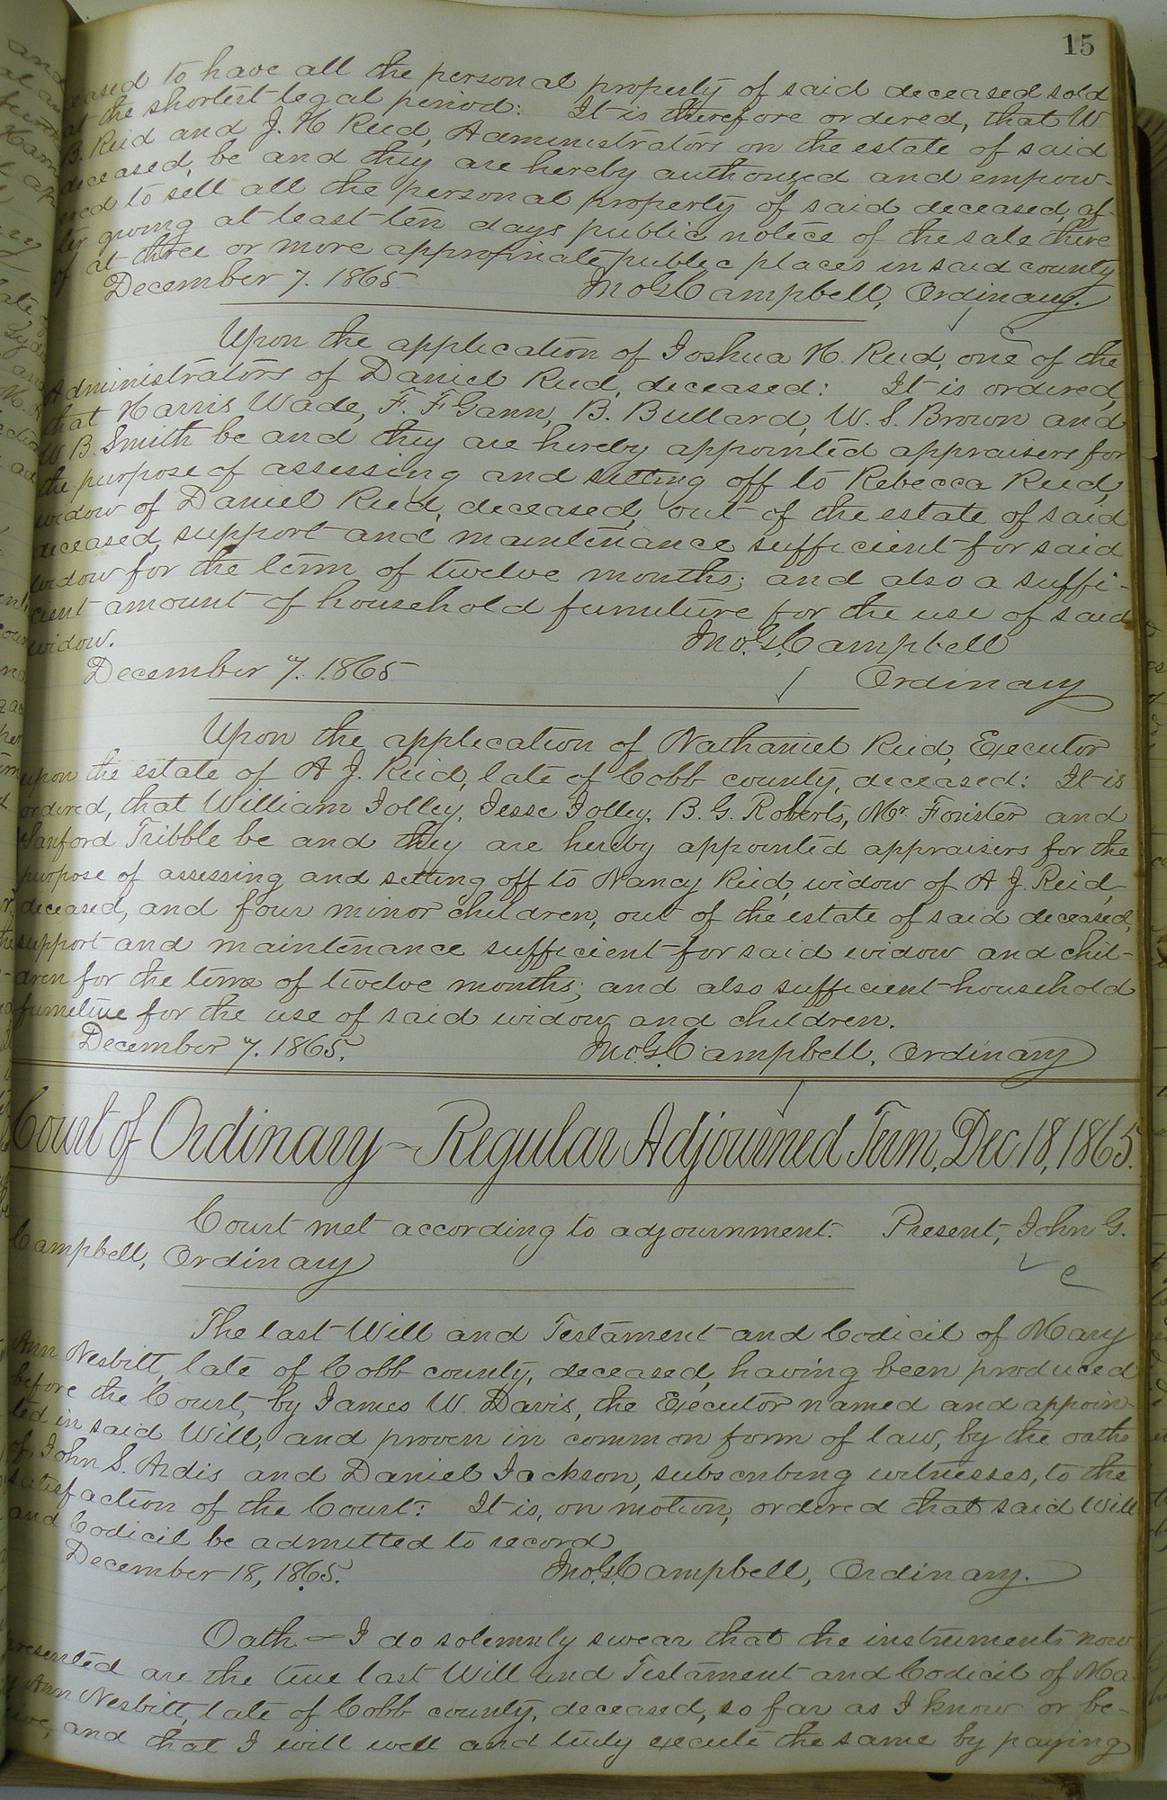 15
eased to have all the personal property of said deceased sold
at the shortest legal period: It is therefore ordered, that W
B. Reid and J. H. Reid, Administrators on the estate of said
deceased, be and they are hereby authorized and empow-
ered to sell all the personal property of said deceased, af-
ter giving at least ten days public notice of the sale there
of at three or more appropriate public places in said county
December 7. 1865 Jno. G. Campbell, Ordinary.
Upon the application of Joshua H. Reid, one of the
Administrators of Daniel Reid, deceased: It is ordered,
that Harris Wade, F. F Gann, B. Bullard, W. S. Brown and
W B. Smith be and they are hereby appointed appraisers for
the purpose of assessing and setting off to Rebecca Reid,
widow of Daniel Reid, deceased, out of the estate of said
deceased, support and maintenance sufficient for said
widow for the term of twelve months; and also a suffi-
cient amount of household furniture for the use of said
widow. Jno. G. Campbell
December 7. 1865 Ordinary
Upon the application of Nathaniel Reid, Executor
upon the estate of A J. Reid, late of Cobb county, deceased: It is
ordered, that William Jolley, Jesse Jolley, B. G. Roberts, Mr. Forister and
Sanford Tribble be and they are hereby appointed appraisers for the
purpose of assessing and setting off to Nancy Reid, widow of A J. Reid,
deceased, and four minor children, out of the estate of said deceased,
support and maintenance sufficient for said widow and chil-
dren for the term of twelve months; and also sufficient household
furniture for the use of said widow and children.
December 7. 1865. Jno. G. Campbell, Ordinary
Court of Ordinary - Regular Adjourned Term, Dec. 18, 1865.
Court met according to adjournment. Present, John G.
Campbell, Ordinary
The last Will and Testament and Codicil of Mary
Ann Nesbitt, late of Cobb county, deceased, having been produced
before the Court, by James W. Davis, the Executor named and appoin-
ted in said Will, and proven in common form of law, by the oaths
of John S. Ardis and Daniel Jackson, subscribing witnesses, to the
satisfaction of the Court: It is, on motion, ordered that said Will
and Codicil be admitted to record
December 18, 1865. Jno. G. Campbell, Ordinary.
Oath - I do solemnly swear that the instruments now
presented are the true last Will and Testament and Codicil of Ma-
ry Ann Nesbitt, late of Cobb county, deceased, so far as I know or be-
lieve, and that I will well and truly execute the same by paying